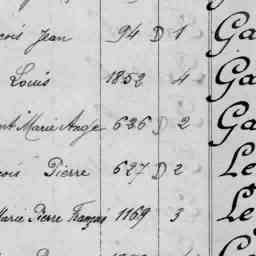 çois Jean 94 D 1 Ga
Louis 1852 4 Ga
Marie Ange 626 D 2 Ga
çois Pierre 627 D 2 Le
Marie Pierre François 1169 3 Le